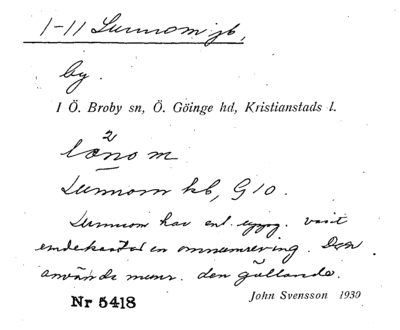 1-11 Lunnom jb,
by.
I Ö. Broby sn, Ö. Göinge hd, Kristianstads l.
2
lænom
Lunnom kb, G10.
Lunnom har enl. uppg. varit
endekastad en omnumrering. Den
använda numr. den gällande.
Nr 5418
John Svensson 1930